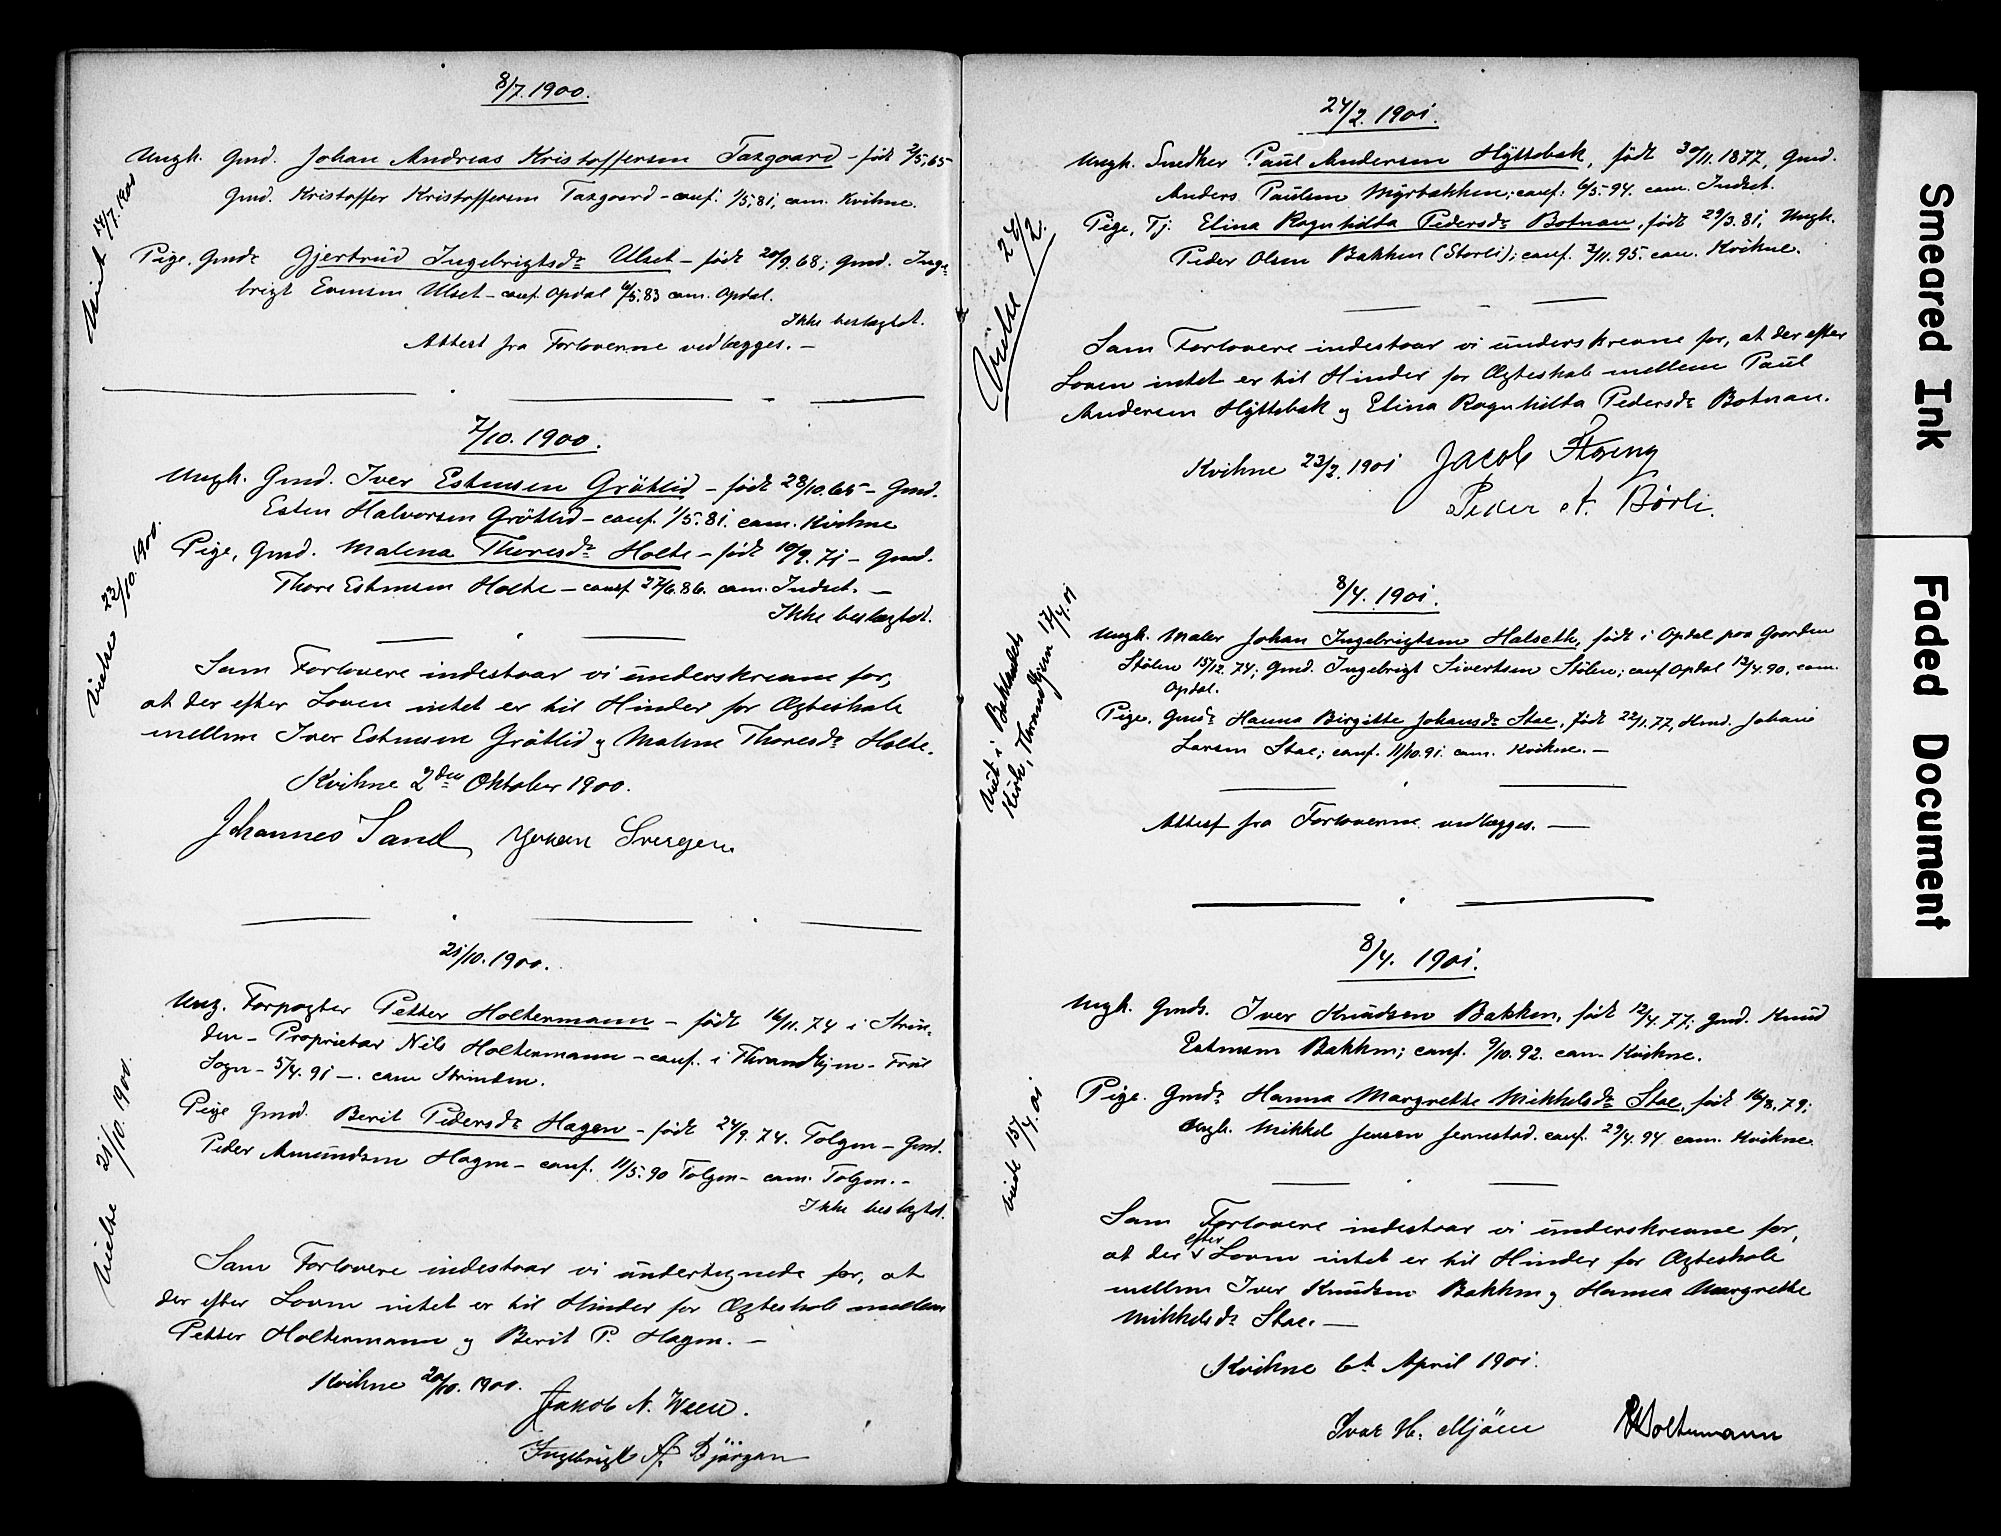 8/7. 1900.
Ungk. Gmd. Johan Andreas Kristoffersen Tazgaard - født 2/5.65
Gmd. Kristoffer Kristoffersen Tazgaard - conf. 1/5.81, com. Kvikne.
Pige, Gmdr Gjertrud Ingebrigtsdr Ulset - født 20/9.68; Gmd. Inge-
brigt Evensen Ulset - conf. Opdal 6/5.83 com. Opdal.
Ikke beslægtet.
Attest fra Forloverne vedlægges. -
Viet 14/7. 1900
7/10. 1900.
Ungk. Gmd. Iver Estensen Grøtlid - født 28/10.65 - Gmd.
Esten Halvorsen Grøtlid - conf. 1/5.81. com. Kvikne
Pige, Gmd. Malena Thoresdr Holte - født 10/9.71 - Gmd.
Thore Estensen Holte - conf 27/6.86. com. Indset. -
Ikke beslægtet.
Som Forlovere indestaar vi underskrevne for,
at der efter Loven intet er til Hinder for Ægteskab
mellem Iver Estensen Grøtlid og Malene Thoresdr Holte.
Kvikne 2den Oktober 1900.
Johannes Sand Johan Svergen
Vielse 23/10. 1900.
21/10. 1900.
Ung. Forpagter Petter Holtermann - født 16/11.74 i Strin-
den - Proprietær Nils Holtermann - conf. i Thrandhjem - Frue
Sogn - 5/4.91 -. com Strinden.
Pige Gmd. Berit Pedersdr Hagen - født 24/9.74. Tolgen - Gmd.
Peder Amundsen Hagen - conf. 11/5.90 Tolgen - com. Tolgen. -
Ikke beslægtet.
Som Forlovere indestaar vi undertegnede for, at
der efter Loven intet er til Hinder for Ægteskab mellem
Petter Holtermann og Berit P. Hagen. -
Kvikne 20/10. 1900.
Jakob N. Ween.
Ingebrigt A. Bjørgan
Vielse 21/10. 1900.
24/2. 1901.
Ungk. Snedker Paul Andersen Hyttebak, født 30/11.1877, Gmd.
Anders Paulsen Myrbakken; conf: 6/5.94. com. Indset.
Pige, Tj. Elina Ragnhilda Pedersdr Botnan, født 29/3.81, Ungk.
Peder Olsen Bakken (Storli); conf. 3/11.95. com. Kvikne.
Som Forlovere indestaar vi underskrevne for, at der efter
Loven intet er til Hinder for Ægteskab mellem Paul
Andersen Hyttebak og Elina Ragnhilda Pedersdr Botnan.
Kvikne 23/2. 1901 Jacob Støeng
Peder A. Børli.
Vielse 24/2.
8/4. 1901.
Ungk. Maler Johan Ingebrigtsen Halseth, født i Opdal paa Gaarden
Stølen 15/12.74; Gmd. Ingebrigt Sivertsen Stølen; conf Opdal 13/4.90. com.
Opdal.
Pige. Gmdr Hanna Birgitte Johansdr Stae, født 22/1.77, Hmd. Johan
Larsen Stae; conf. 11/10.91. com. Kvikne. -
Attest fra Forloverne vedlægges. -
Viet i Baklandets
Kirke, Thrandhjem 17/4.01
8/4. 1901.
Ungk. Gmds. Iver Knudsen Bakken, født 12/4.77; Gmd. Knud
Estensen Bakken; conf. 9/10.92. com. Kvikne.
Pige. Gmdr Hanna Margrethe Mikkelsdr Stae, født 16/8.79;
Ungk. Mikkel Jensen Jennestad. conf. 29/4.94 com. Kvikne.
Som Forlovere indestaar vi underskrevne for,
at der efter Loven intet er til Hinder for Ægteskab
mellem Iver Knudsen Bakken og Hanna Margrethe
Mikkelsdr Stae. -
Kvikne 6te April 1901.
Ivar H. Mjøen Holtermann
Viede 15/4.01
Smeared Ink
Faded Document